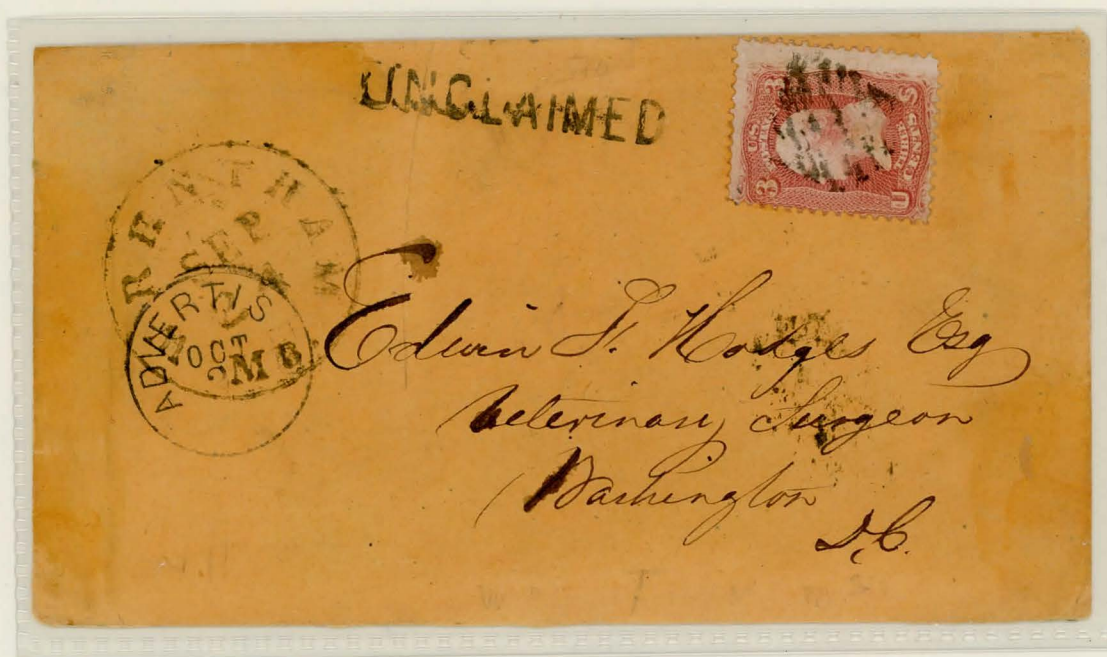 UNCLAIMED
WRENTHAM
SEP
ADVERTIS
OCT
MS.
U 3
U.S. POSTAGE
THREE
Edwin F. Hodges Esq
Veterinary Surgeon
Washington
D.C.